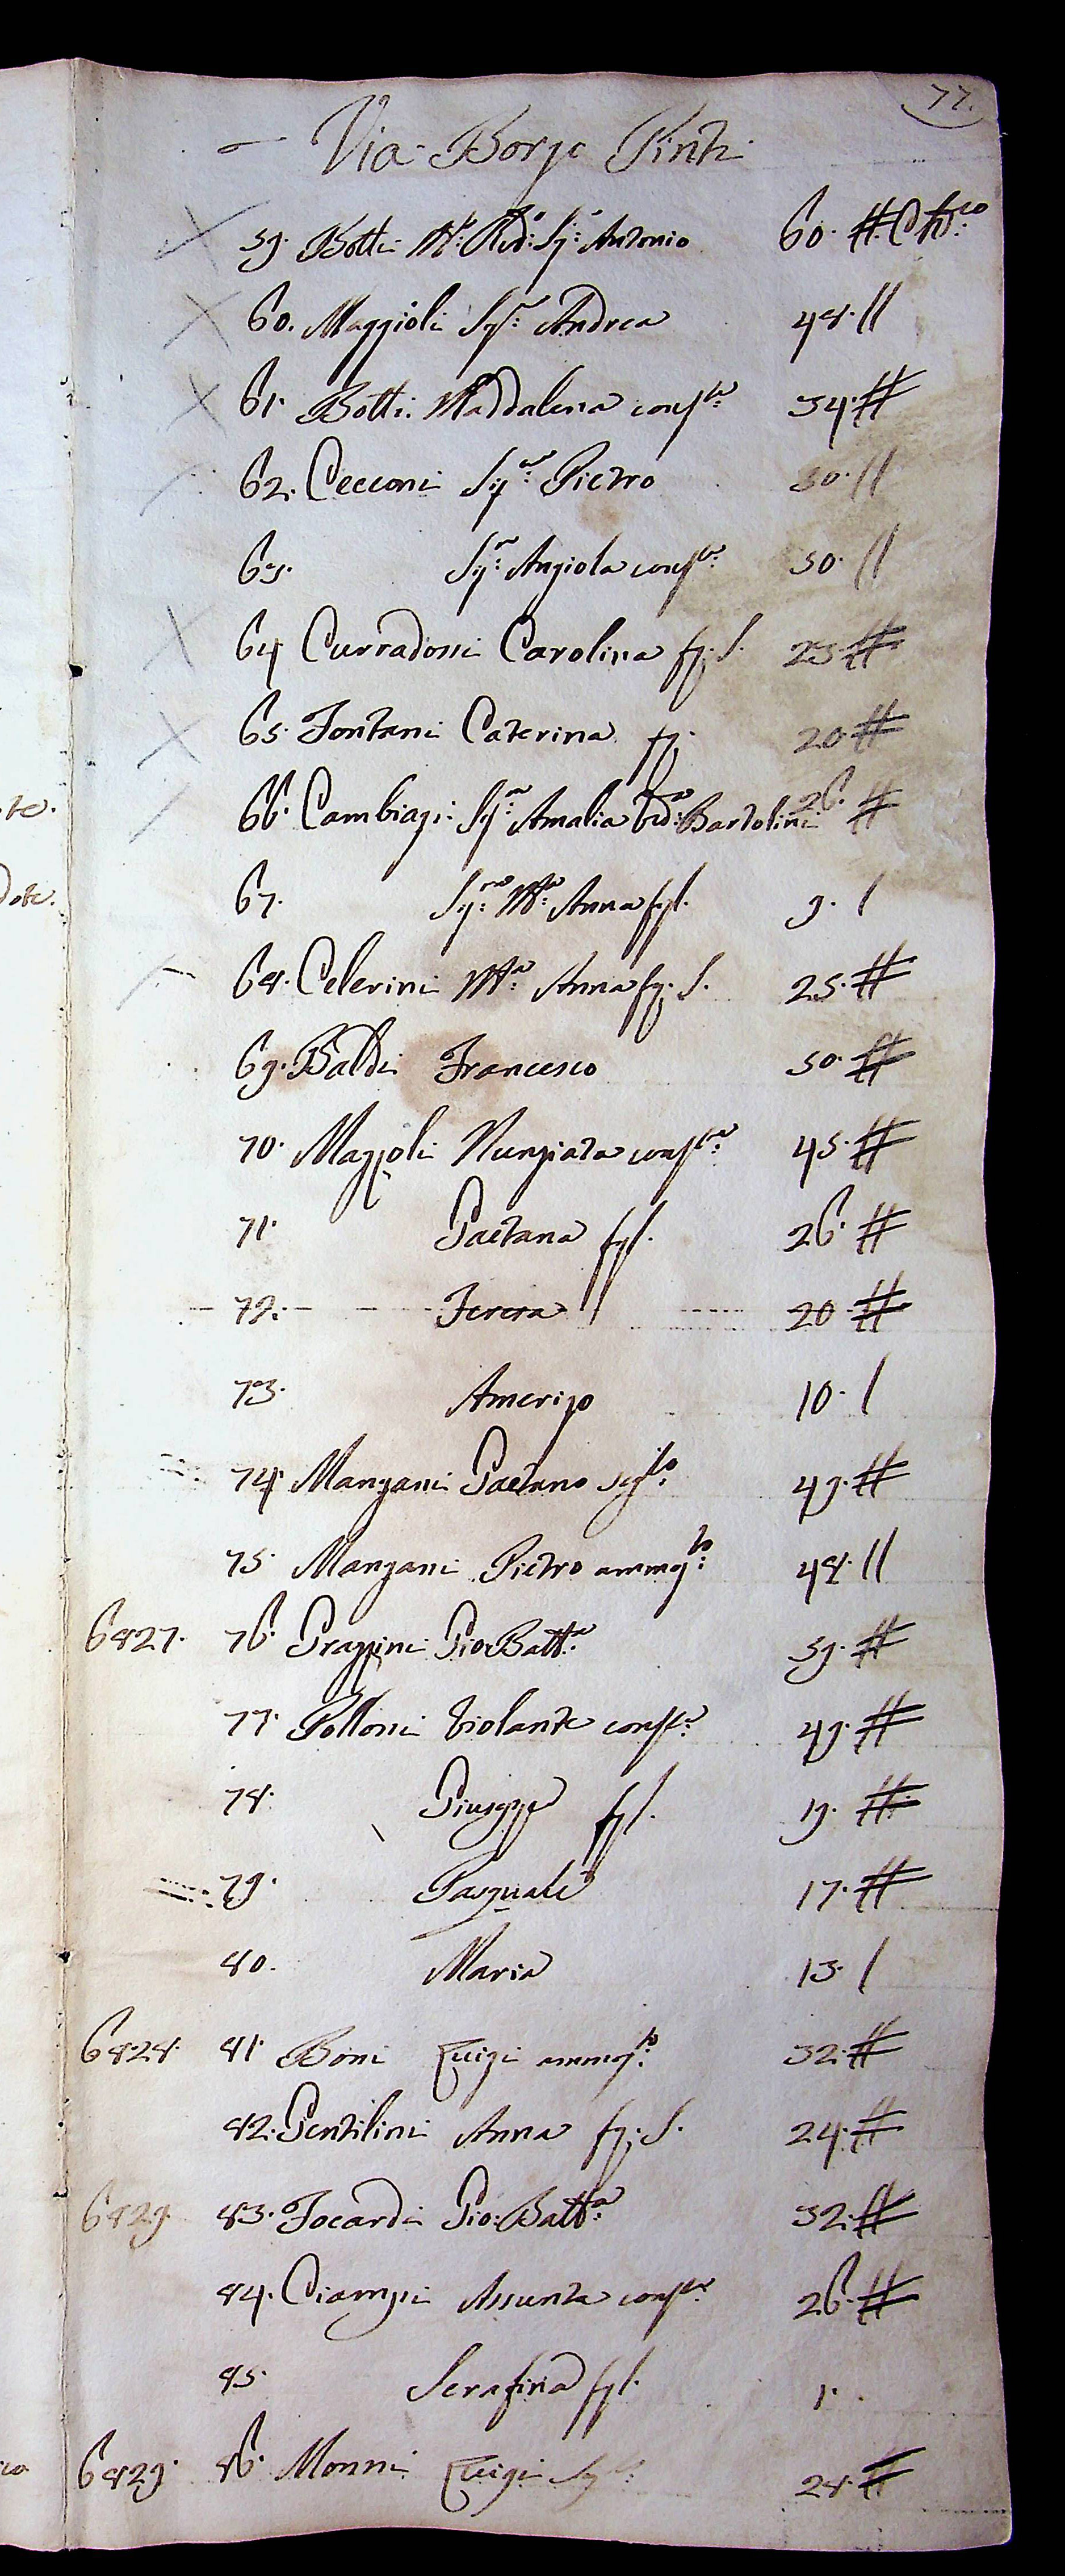 77.
Via Borgo Pinti
59. Botti M.º Rd.º Sig.º Antonio 60. #
60. Maggioli Sig.r Andrea 48. //
61. Botti Maddalena cons.te 54. #
62. Cecconi Sig.re Pietro 50. //
63. Sig.a Angiola cons.te 50. //
64 Curradossi Carolina fg. S. 23 #
65. Fontani Caterina fg. 20 #
66. Cambiagi Sig.ra Amalia Ved.a Bartolini 26. #
67. Sig.na M.a Anna fgl. 9. /
68. Celerini M.a Anna fg. S. 25. #
69. Baldi Francesco 50. #
70. Mazzoli Nunziata cons.te 45. #
71. Gaetana fgl. 26. #
72. Teresa 20 #
73. Amerigo 10. /
74. Manzani Gaetano 49. #
75. Manzani Pietro ammog.to 48. //
6827. 76. Grazzini Gio: Batt.a 59. #
77. Polloni Violante cons.te 49. #
78. Giuseppe fgl. 19. #
79. Pasquale 17. #
80. Maria 13. /
6828. 81. Boni Luigi ammog.to 32. #
82. Gentilini Anna fg. S. 24. #
6829. 83. Focardi Gio: Batt.a 32. #
84. Ciampi Assunta cons.te 26. #
85. Serafina fgl. 1.
6829. 86. Monni Luigi 28. #
te.